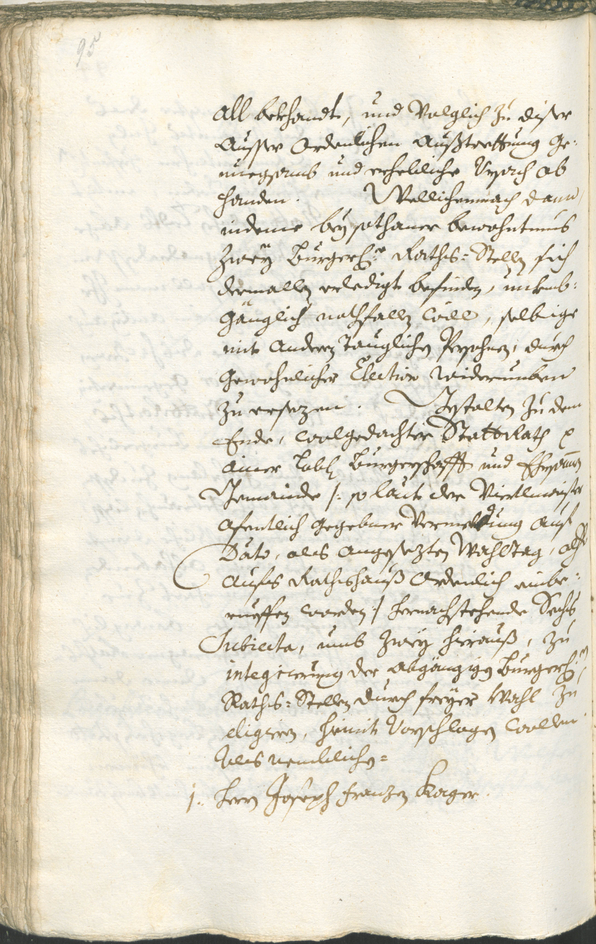 95
all bekhandt, und volglich zu diser
Ausser Ordenlichen Außtreffung ge-
nuegsamb und erhebliche Ursach ob
handen. Wellichemnach dann
indeme beysothaner bewohntnus
Zwey Burgerl: Raths-Stellen sich
dermallen erledigt befinden, unumb-
gänglich nothfallen will, selbige
mit Anderen tauglichen Persohnen, durch
Gewohnlicher Election widerumben
zu ersezen. Gestalten zu dem
Ende, wolgedachter StattRath
ainer Löbl: Burgerschafft und
Gemainde /: so laut der Viertlmaister
ofentlich gegebner Vermeldung auf
Dato, als angesezten Wahltag,
aufs Rathshauß Ordenlich einbe-
rueffen worden :/ hernach stehende Sechs
Subiecta, umb Zwey hierauß, zu
integrierung der abgangigen Burgerl:
Raths-Stellen durch freyer Wahl zu
eligiren, hiemit Vorschlagen wollen.
Als nemblichen
1. Herrn Joseph Franzen Kager.